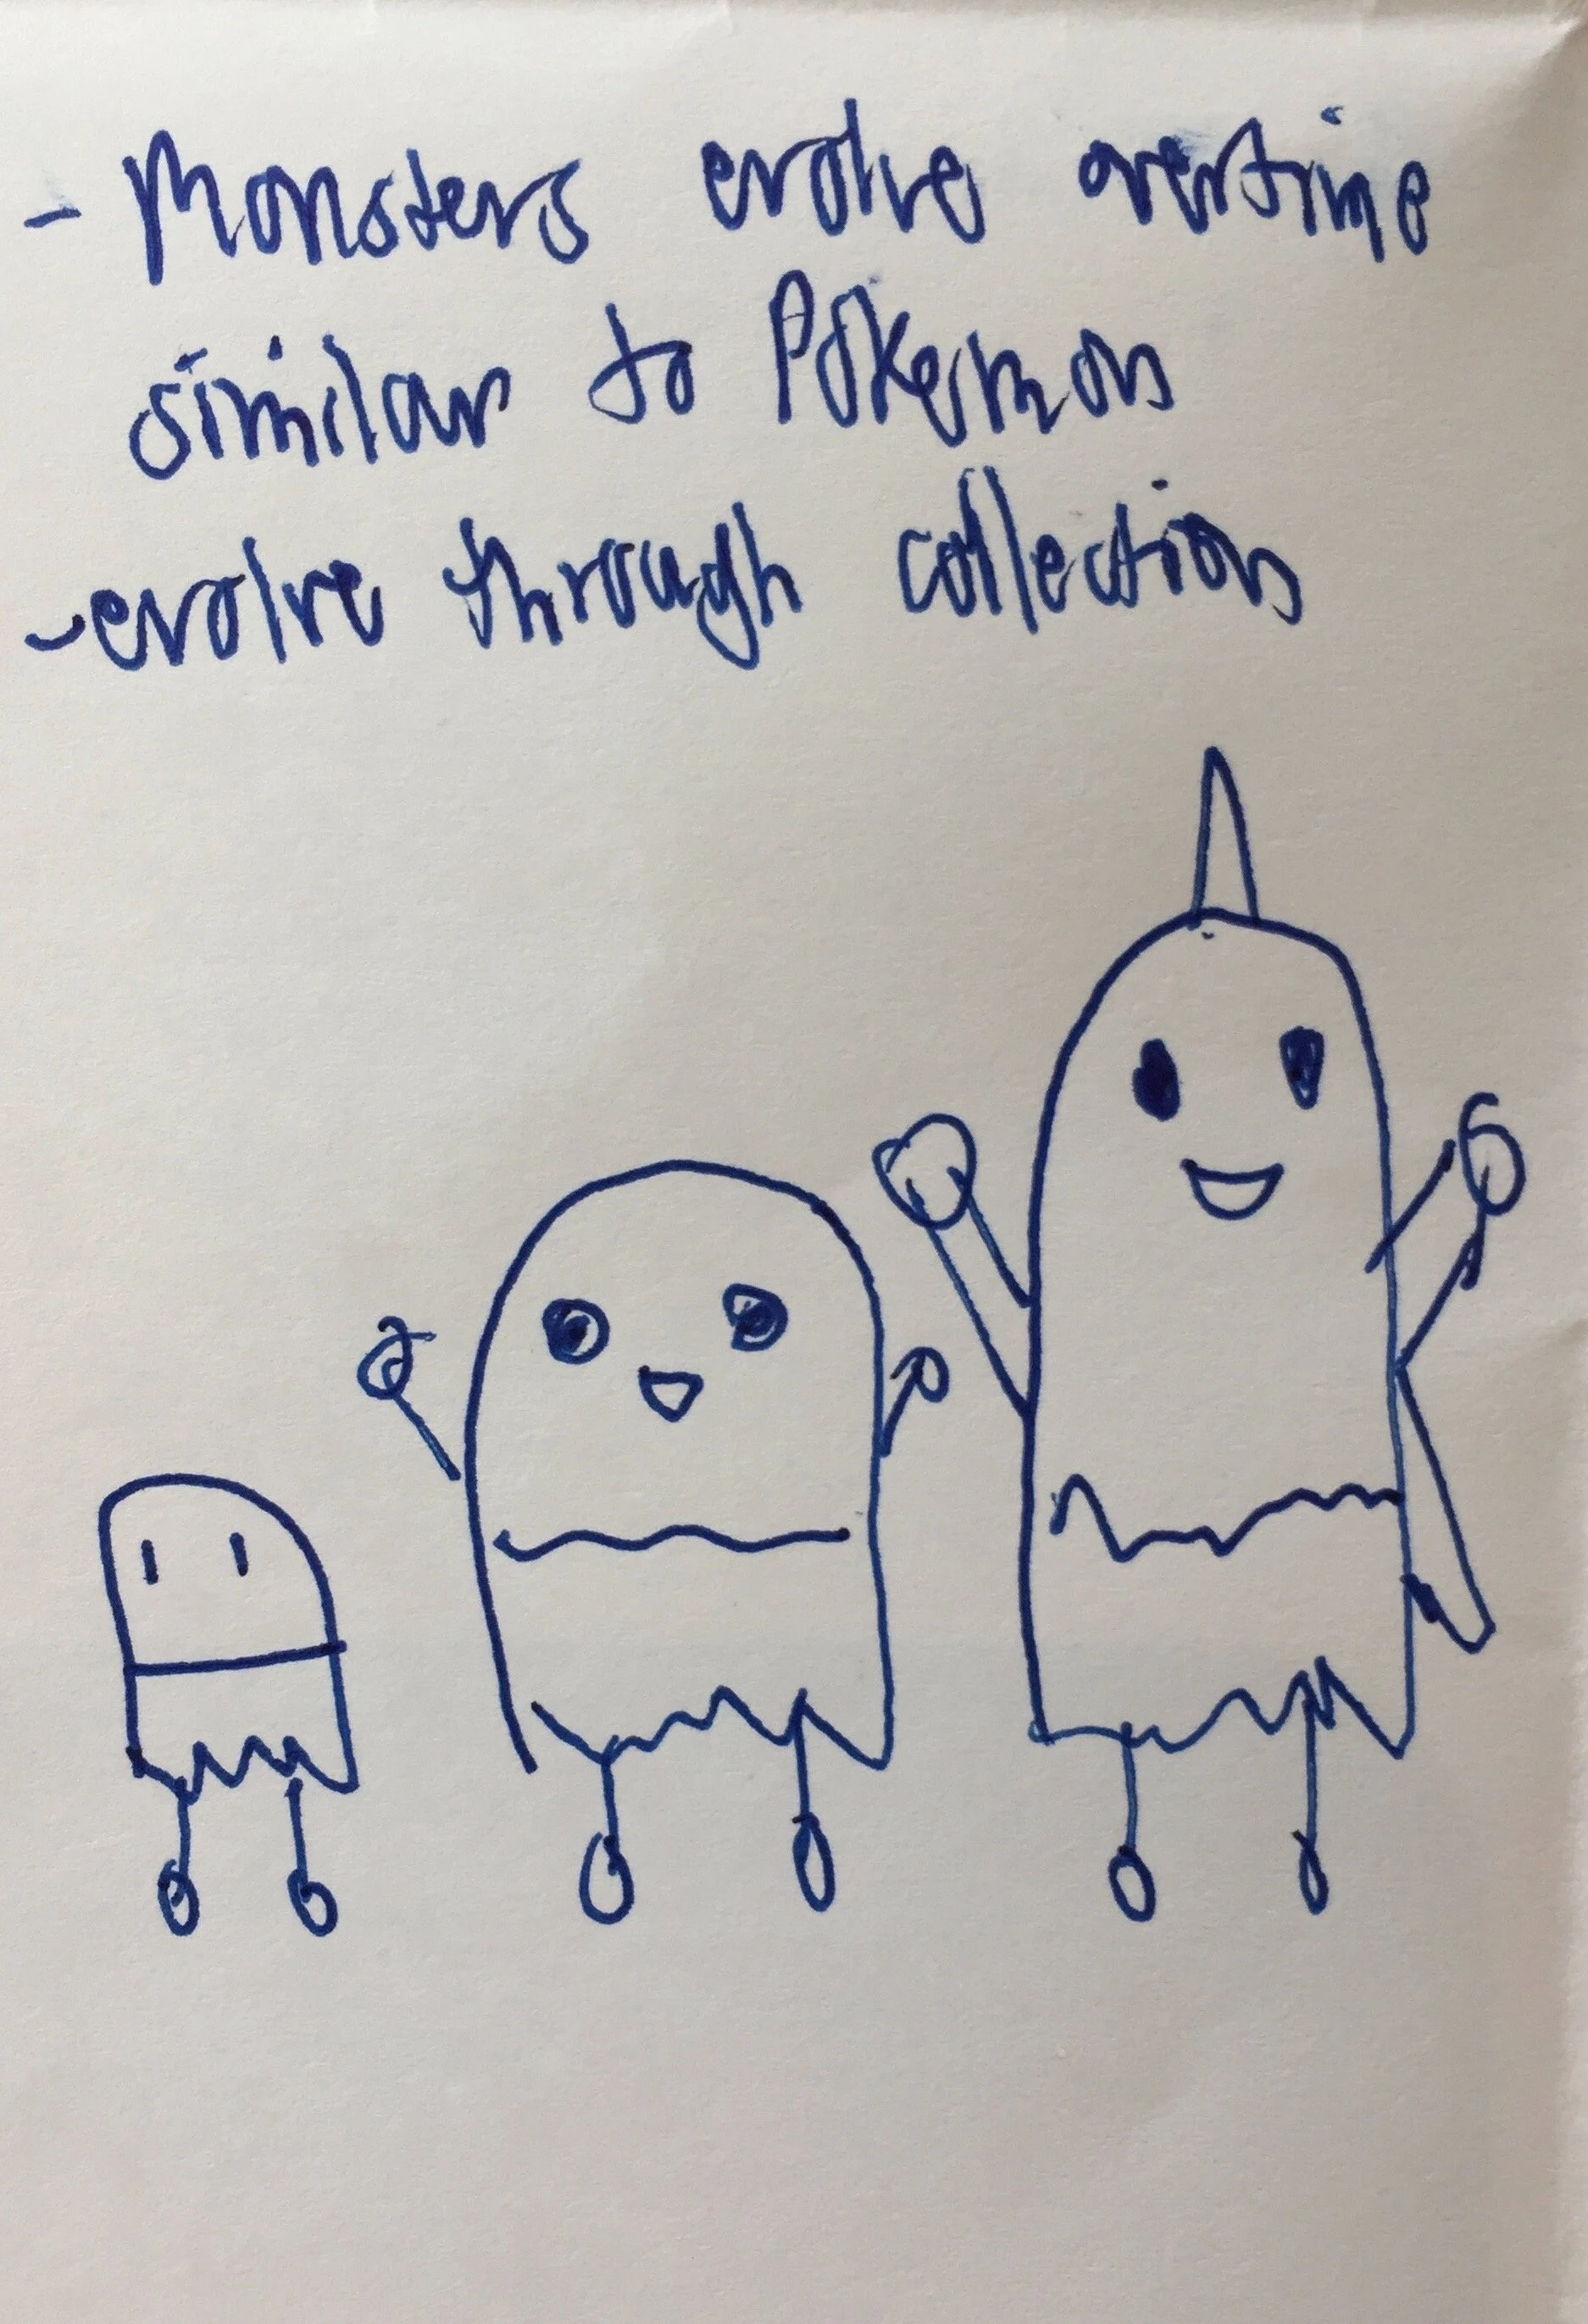 - Monsters evolve overtime
similar to Pokemon
- evolve through collection